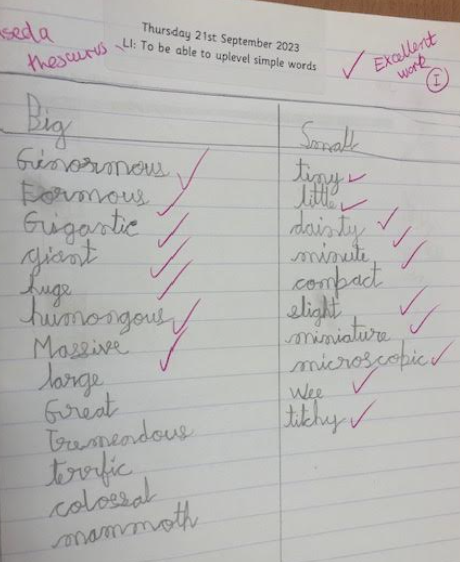 Thursday 21st September 2023
used a
thesaurus
LI: To be able to uplevel simple words
Excellent
work
I
Big
Ginormous
Eormous
Gigantic
giant
huge
humongous
Massive
large
Great
Tremendous
terrific
colossal
mammoth
Small
tiny
little
dainty
minute
compact
slight
miniature
microscopic
wee
titchy